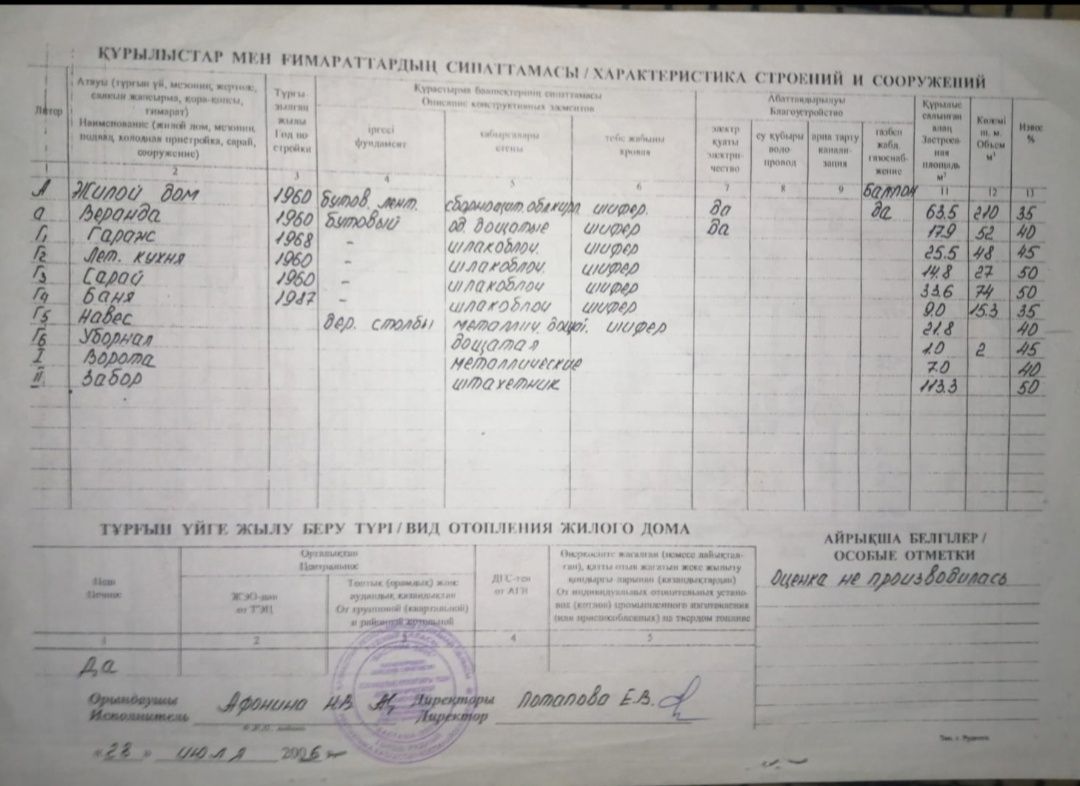 ҚҰРЫЛЫСТАР МЕН ҒИМАРАТТАРДЫҢ СИПАТТАМАСЫ / ХАРАКТЕРИСТИКА СТРОЕНИЙ И СООРУЖЕНИЙ
Литер
Атауы (тұрғын үй, мезонин, жертөле, салқын жапсырма, қора-қопсы, ғимарат)
Наименование (жилой дом, мезонин, подвал, холодная пристройка, сарай, сооружение)
Тұрғызылған жылы
Год постройки
Құрастырма бөлшектерінің сипаттамасы
Описание конструктивных элементов
іргесі
фундамент
қабырғалары
стены
төбе жабыны
кровля
Абаттандырылуы
Благоустройство
электр қуаты
электричество
су құбыры
водопровод
арна тарту
канализация
газбен жабд.
газоснабжение
Құрылыс салынған алаң
Застроенная площадь, м²
Көлемі ш. м.
Объем м³
Износ %
1 2 3 4 5 6 7 8 9 11 12 13
А Жилой дом 1960 бутов. лент. сборнощит. обл. кирп шифер. да баллон да 63.5 210 35
а Веранда 1960 бутовый од. дощатые шифер да 17.9 52 40
Г1 Гараж 1968 – шлакоблоч. шифер 25.5 48 45
Г2 Лет. кухня 1960 – шлакоблоч. шифер 14.8 27 50
Г3 Сарай 1960 – шлакоблоч шифер 33.6 74 50
Г4 Баня 1987 – шлакоблоч шифер 9.0 15.3 35
Г5 Навес дер. столбы металлич. дощ. шифер 21.8 40
Г6 Уборная дощатая 1.0 2 45
I Ворота металлические 7.0 40
II Забор штахетник 113.3 50
ТҰРҒЫН ҮЙГЕ ЖЫЛУ БЕРУ ТҮРІ / ВИД ОТОПЛЕНИЯ ЖИЛОГО ДОМА
Пеш
Печное
Орталықтан
Центральное
ЖЭО-дан
от ТЭЦ
Топтық (орамдық) және аудандық қазандықтан
От групповой (квартальной) и районной котельной
от АГВ
От индивидуальных отопительных установок (котлов) промышленного изготовления (или приспособленных) на твердом топливе
1 2 3 4 5
Да
АЙРЫҚША БЕЛГІЛЕР /
ОСОБЫЕ ОТМЕТКИ
Оценка не производилась
Орындаушы
Исполнитель Афонина Н.В.
Директоры
Директор Потапова Е.В.
«22» июля 2006